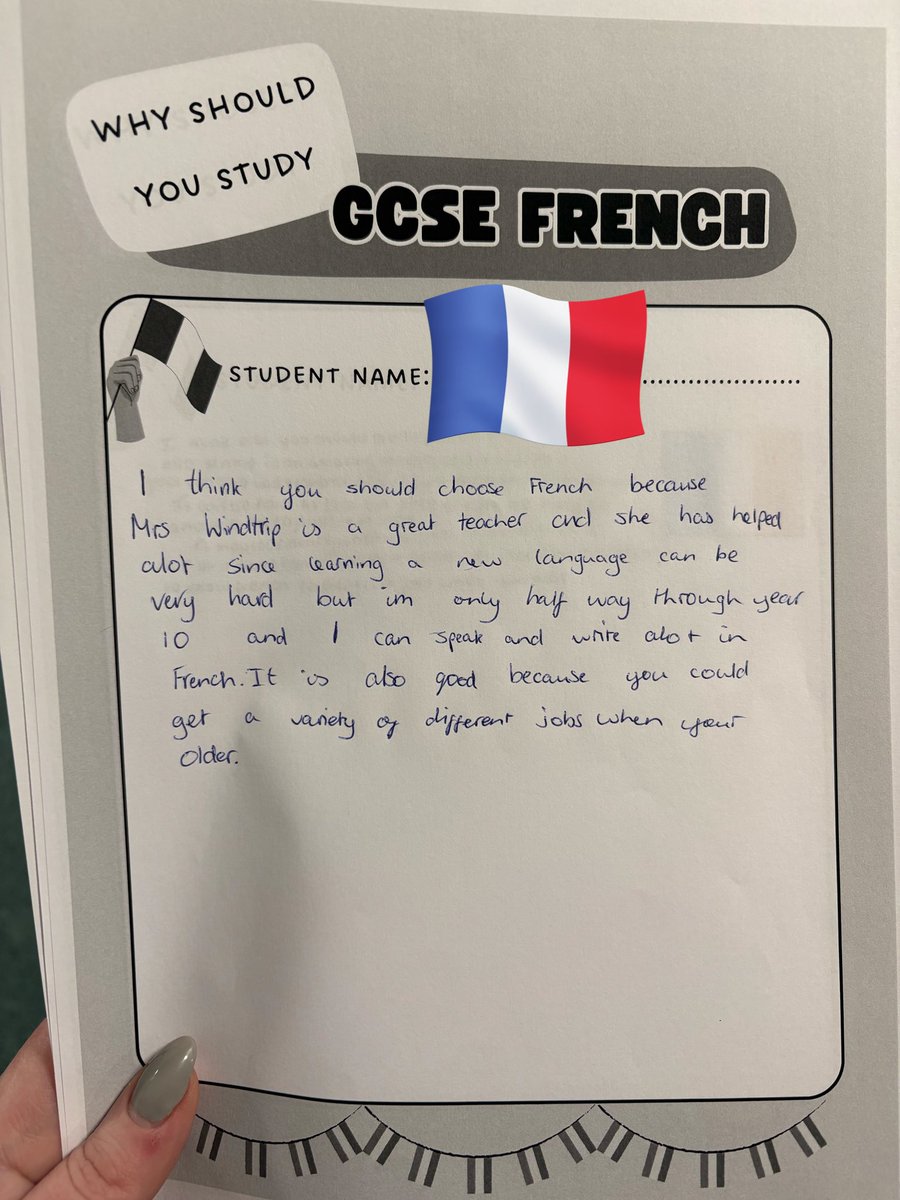 WHY SHOULD
YOU STUDY
GCSE FRENCH
STUDENT NAME:
I think you should choose French because
Mrs Windtrip is a great teacher and she has helped
alot since learning a new language can be
very hard but im only half way through year
10 and I can speak and write alot in
French. It is also good because you could
get a variety of different jobs when your
older.